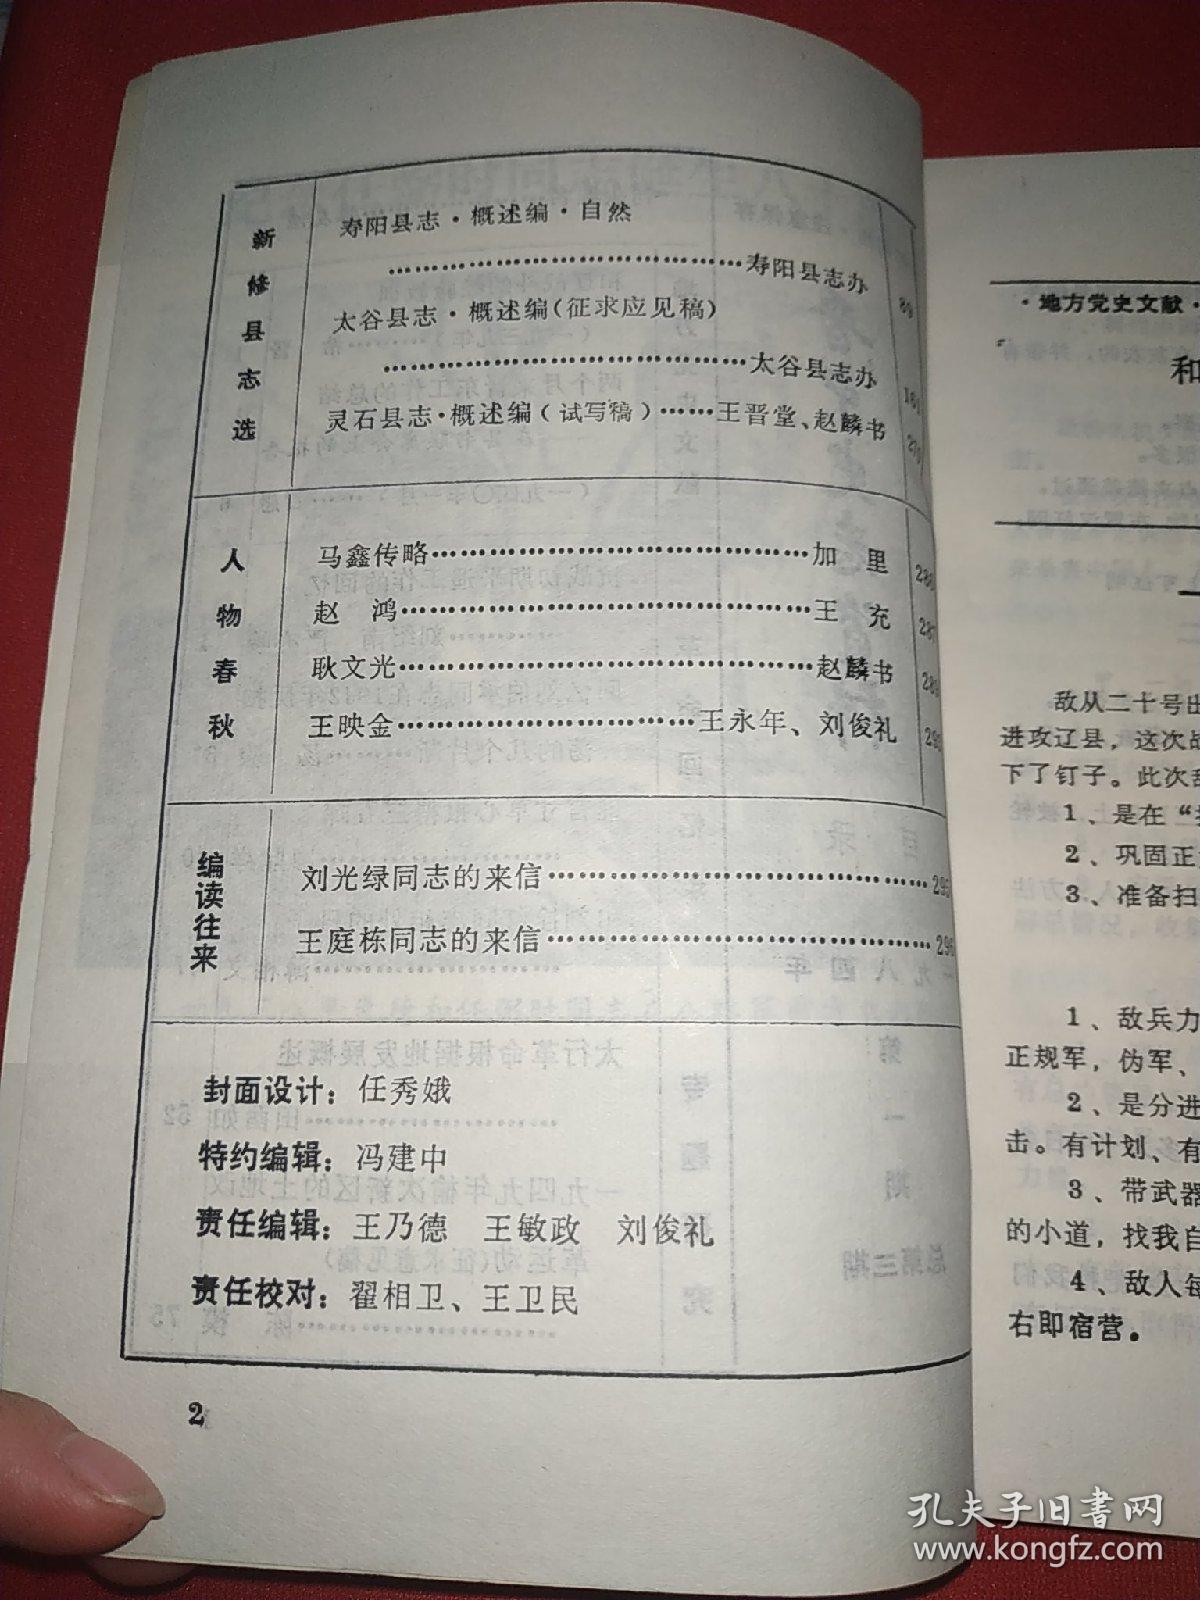 新修县志选
寿阳县志·概述编·自然
……………………………………寿阳县志办 89
太谷县志·概述编(征求应见稿)
……………………………………太谷县志办
灵石县志·概述编(试写稿)……王晋堂、赵麟书
人物春秋
马鑫传略……………………………………加 里
赵 鸿……………………………………王 充 287
耿文光……………………………………赵麟书
王映金……………………………王永年、刘俊礼
编读往来
刘光绿同志的来信……………………………………295
王庭栋同志的来信……………………………………296
封面设计：任秀娥
特约编辑：冯建中
责任编辑：王乃德 王敏政 刘俊礼
责任校对：翟相卫、王卫民
2
·地方党史文献·
和
敌从二十号出
进攻辽县，这次战
下了钉子。此次敌
1、是在“
2、巩固正
3、准备扫
1、敌兵力
正规军，伪军、
2、是分进
击。有计划、有
3、带武器
的小道，找我自
4、敌人每
右即宿营。
孔夫子旧书网
www.kongfz.com